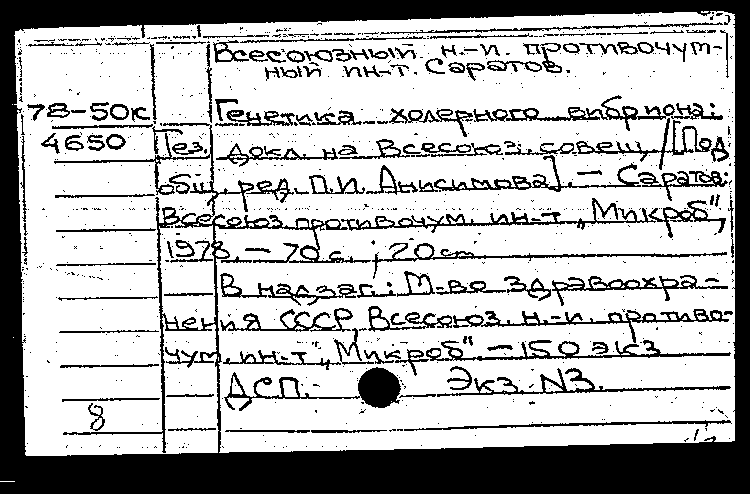 Всесоюзный н.-и. противочум-
ный ин-т. Саратов.
78-50к Генетика холерного вибриона:
4650 Тез. докл. на Всесоюз. совещ. / [Под
общ. ред. П.И. Анисимова]. — Саратов:
Всесоюз. противочум. ин-т „Микроб",
1978. — 70 с. ; 20 cm.
В надзаг.: М-во здравоохра-
нения СССР, Всесоюз. н.-и. противо-
чум. ин-т „Микроб". — 150 экз
ДСП. Экз. N3.
8